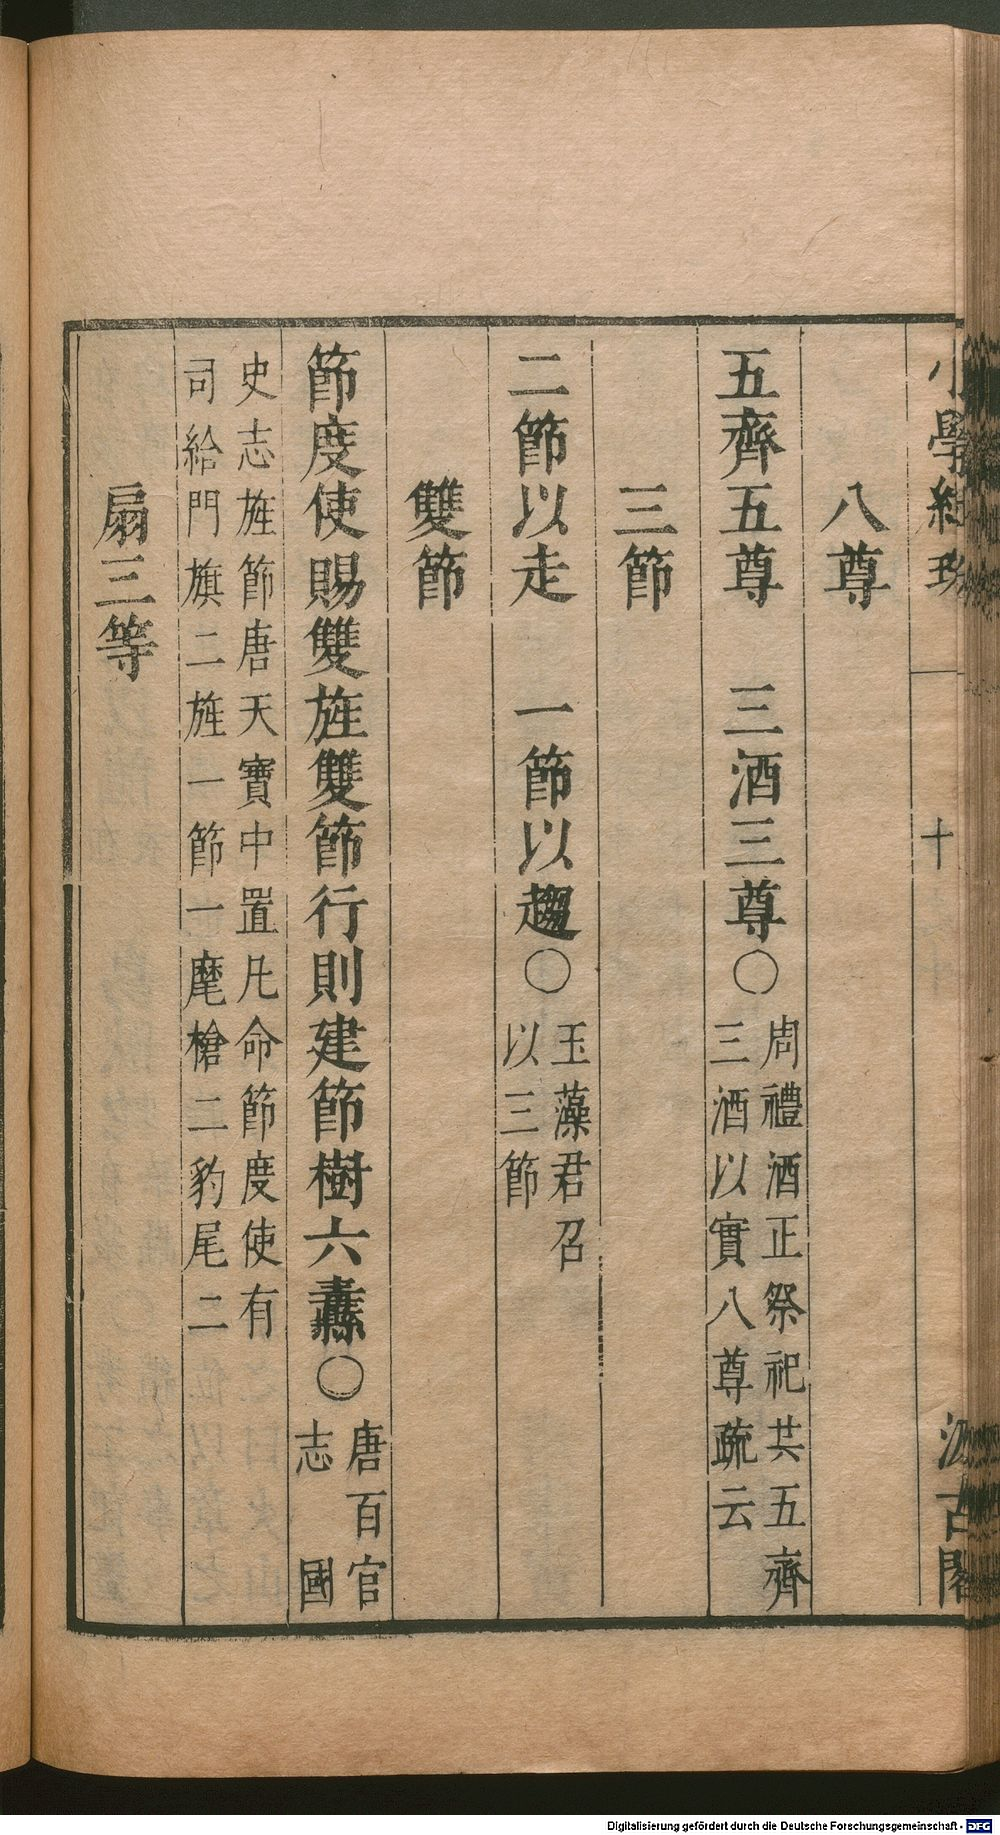 小學紺珠 十 汲古閣
八尊
五齊五尊 三酒三尊○周禮酒正祭祀共五齊
三酒以實八尊疏云
三節
二節以走 一節以趨○玉藻君召
以三節
雙節
節度使賜雙旌雙節行則建節樹六纛○唐百官
志 國
史志旌節唐天寶中置凡命節度使有
司給門旗二旌一節一麾槍二豹尾二
扇三等
Digitalisierung gefördert durch die Deutsche Forschungsgemeinschaft - DFG